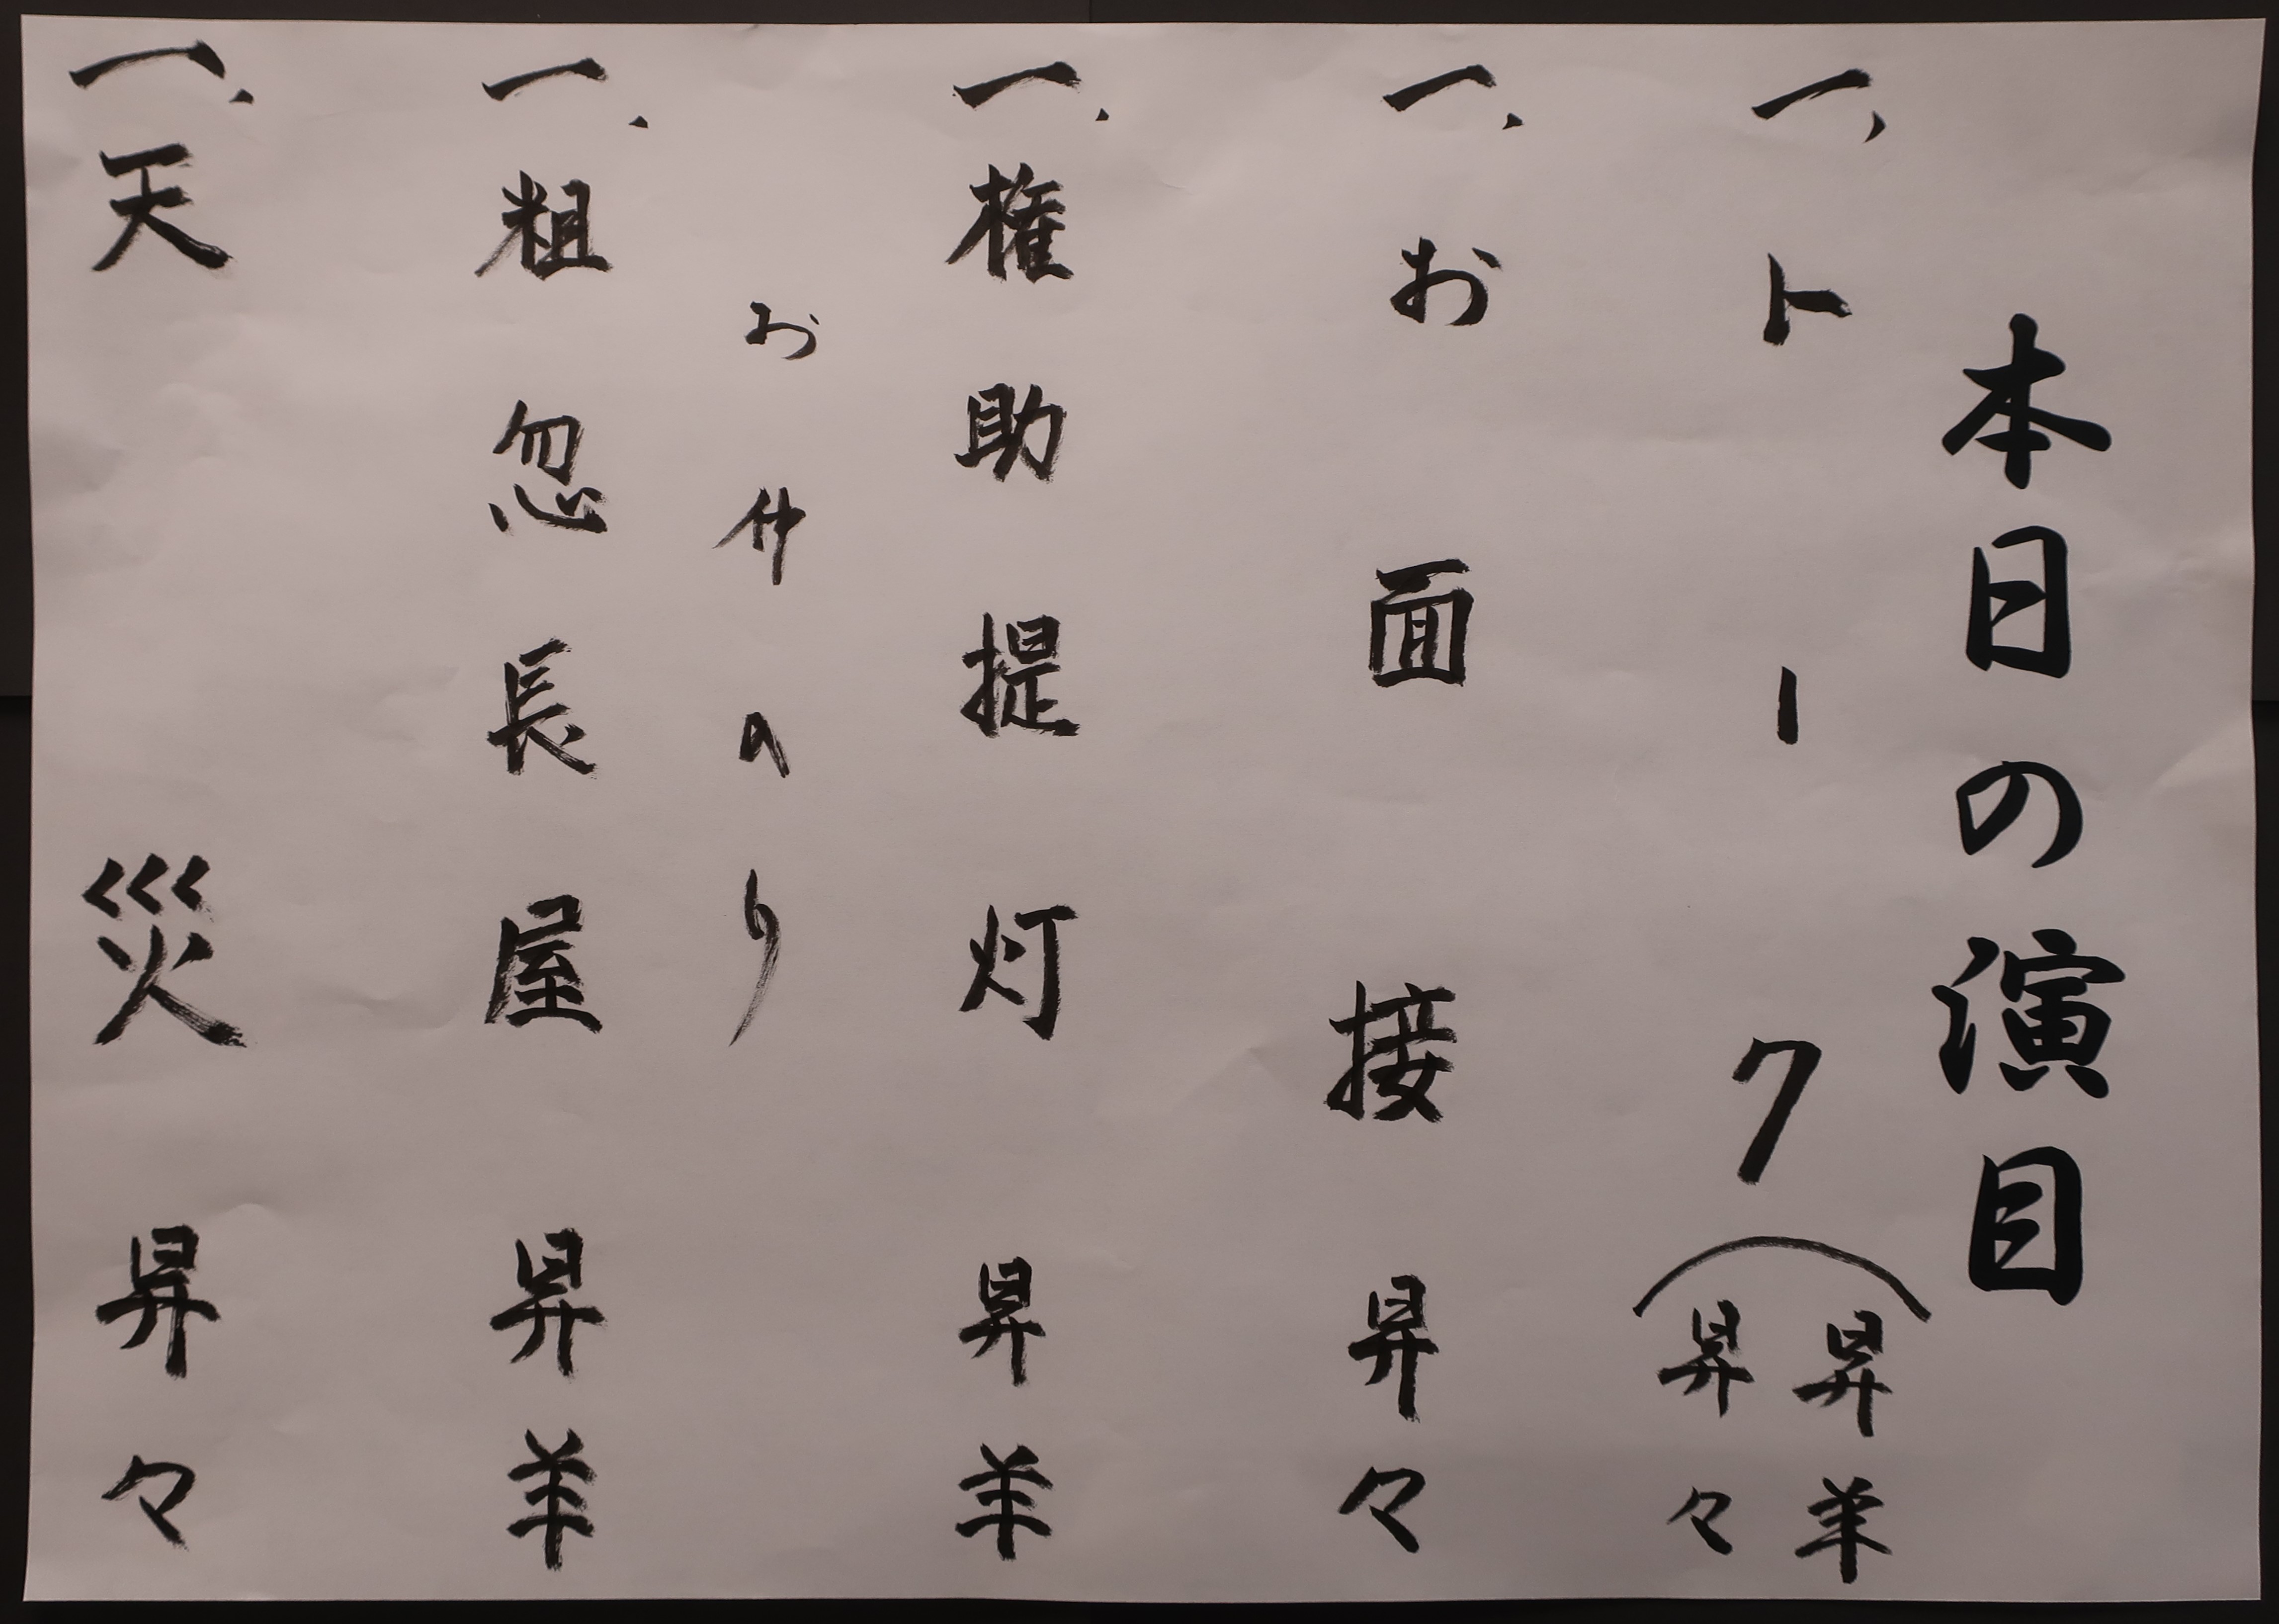 本日の演目
一、トーク 昇羊 昇々
一、お面接 昇々
一、権助提灯 昇羊
お仲入り
一、粗忽長屋 昇羊
一、天災 昇々